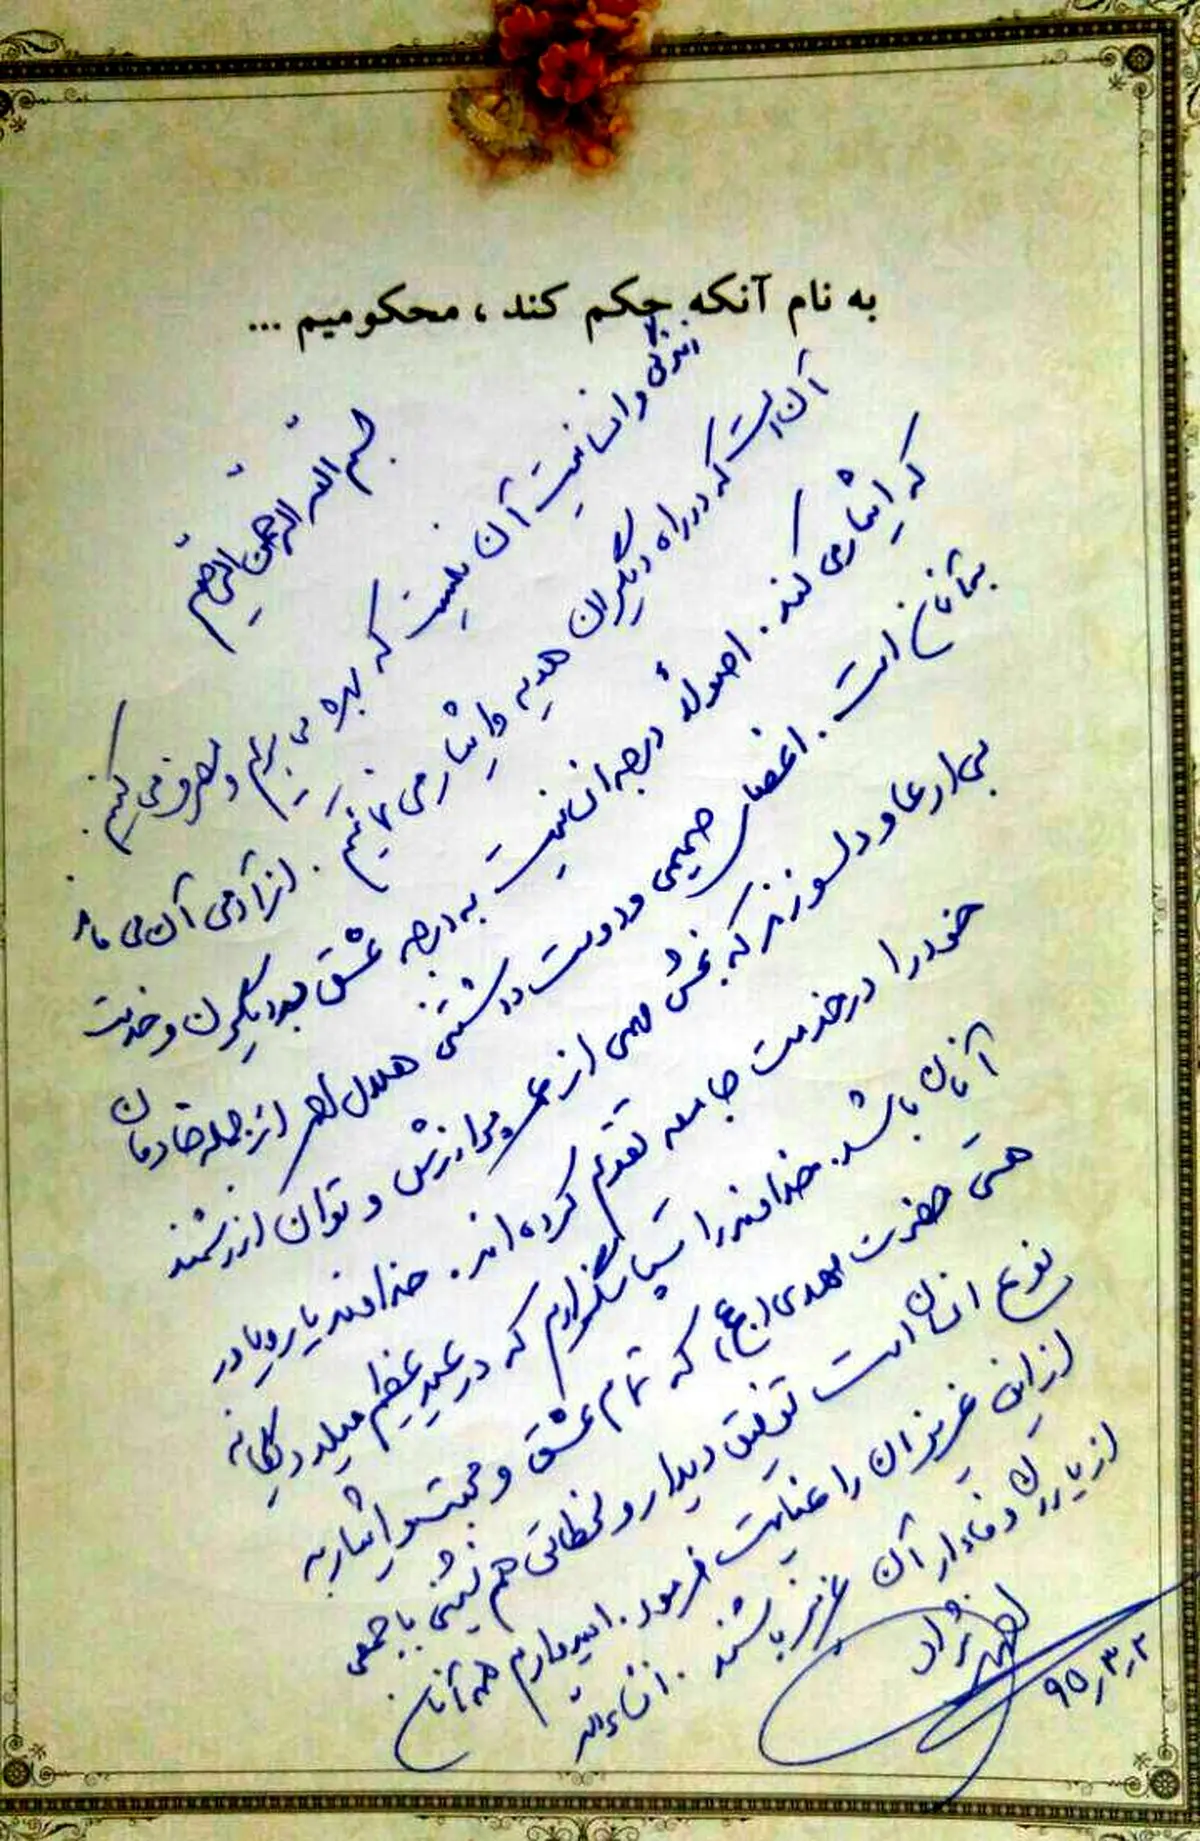 به نام آنکه حکم کند ، محکومیم ...
بسم الله الرحمن الرحیم
زندگی و انسانیت آن نیست که بهره می بریم و مصرف می کنیم.
آن است که در راه دیگران هدیه و ایثار می نمائیم. از آدمی آن می ماند
که ایثار می کند. اصولاً درجه انسانیت به درجه عشق به دیگران و خدمت
به آنان است. اعضای صمیمی و دوست داشتنی هلال احمر از جمله خادمان
بی ادعا و دلسوزند که بخش مهمی از عمر پرارزش و توان ارزشمند
خود را در خدمت جامعه تقدیم کرده اند. خداوند یار و یاور
آنان باشد. خداوند را سپاسگزارم که در عید عظیم میلاد یگانه
هستی حضرت مهدی (عج) که تمام عشق و محبت و ایثار به
نوع انسان است توفیق دیدار و لحظاتی هم نشینی با جمعی
از این عزیزان را عنایت فرمود. امیدوارم همه آنان
از یاران وفادار آن عزیز باشند. انشاءالله
احمدی نژاد
۹۵٫۳٫۲